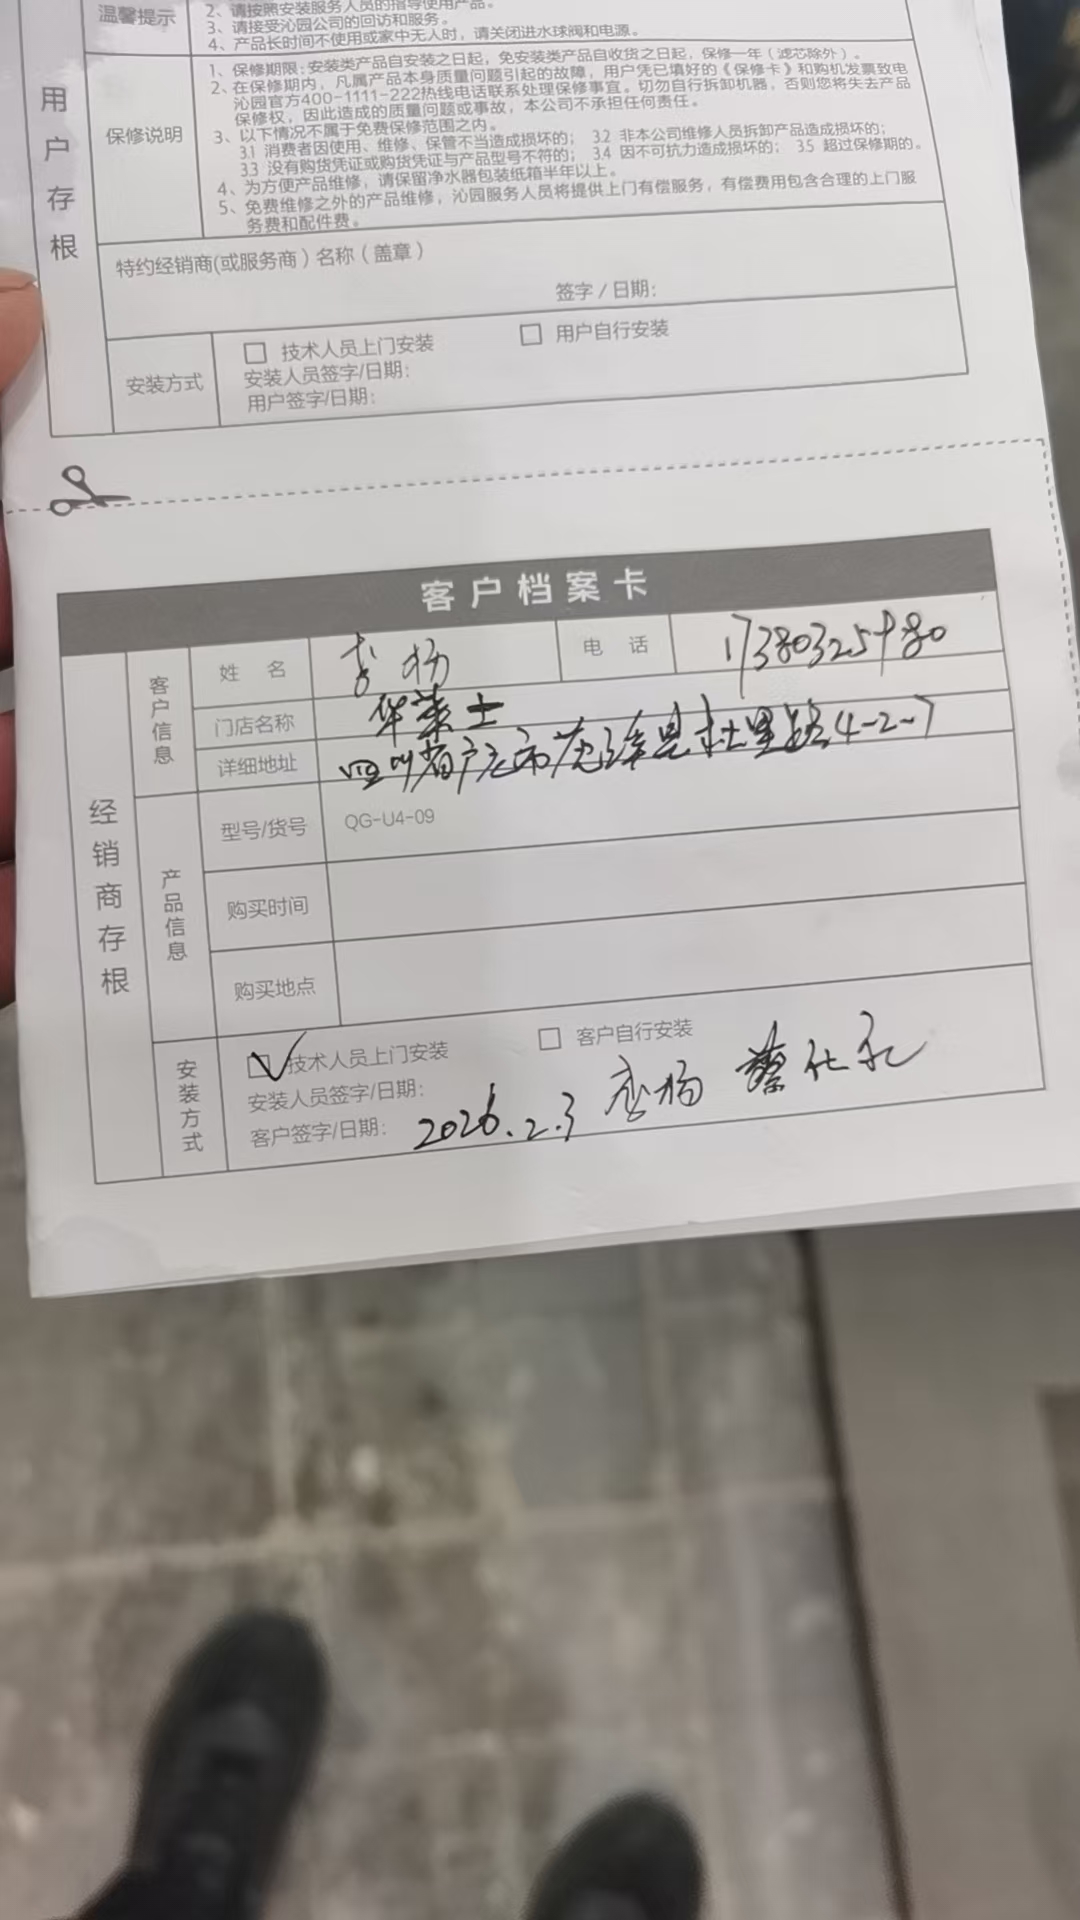 用户存根
温馨提示
2、请按照安装服务人员的指导使用产品。
3、请接受沁园公司的回访和服务。
4、产品长时间不使用或家中无人时，请关闭进水球阀和电源。
保修说明
1、保修期限：安装类产品自安装之日起，免安装类产品自收货之日起，保修一年（滤芯除外）。
2、在保修期内，凡属产品本身质量问题引起的故障，用户凭已填好的《保修卡》和购机发票致电
沁园官方400-1111-222热线电话联系处理保修事宜。切勿自行拆卸机器，否则您将失去产品
保修权，因此造成的质量问题或事故，本公司不承担任何责任。
3、以下情况不属于免费保修范围之内。
3.1 消费者因使用、维修、保管不当造成损坏的； 3.2 非本公司维修人员拆卸产品造成损坏的；
3.3 没有购货凭证或购货凭证与产品型号不符的； 3.4 因不可抗力造成损坏的； 3.5 超过保修期的。
4、为方便产品维修，请保留净水器包装纸箱半年以上。
5、免费维修之外的产品维修，沁园服务人员将提供上门有偿服务，有偿费用包含合理的上门服
务费和配件费。
特约经销商(或服务商)名称（盖章）
签字 / 日期：
安装方式
技术人员上门安装 用户自行安装
安装人员签字/日期：
用户签字/日期：
客户档案卡
经销商存根
客户信息
姓 名 李杨 电 话
门店名称 华莱士
详细地址 四川省广元市 4-2-7
产品信息
型号/货号 QG-U4-09
购买时间
购买地点
安装方式
技术人员上门安装 客户自行安装
安装人员签字/日期：
客户签字/日期： 2026.2.3